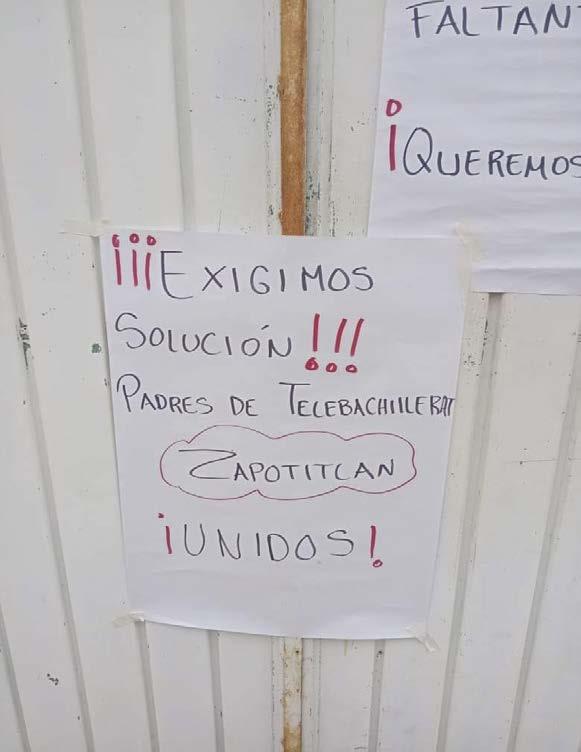 FALTAN
¡QUEREMOS
¡¡¡EXIGIMOS
SOLUCIÓN!!!
PADRES DE TELEBACHILLERAT
ZAPOTITLAN
¡UNIDOS!